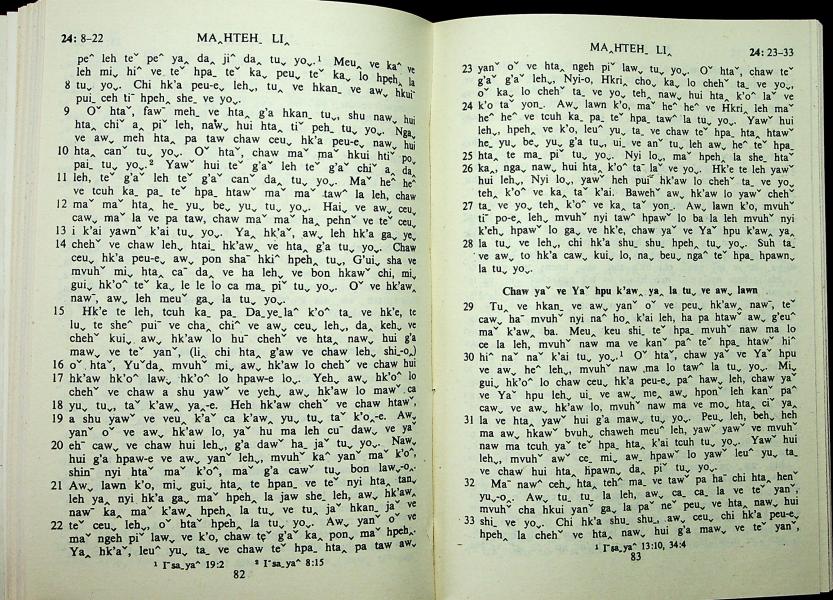 24: 8–22
MAˬHTEHˍ LI˰
peˆ leh teˇ peˆ yaˬ daˬ jiˆ daˬ tuˬ yoˬ.¹ Meuˬ ve kaˆ ve
leh miˬ hiˆ ve teˇ hpaˍ teˇ kaˬ peuˬ teˇ kaˬ lo hpehˬ la
8 tuˬ yoˬ. Chi hk'a peu-eˬ lehˬ, tuˬ ve hkanˍ ve awˬ hkuiˇ
puiˍ ceh tiˉ hpehˬ sheˍ ve yoˬ.
9 Oˇ htaˇ, fawˇ mehˍ ve htaˬ g'a hkanˍ tuˬ, shu nawˬ hui
htaˬ chiˇ aˬ piˇ leh, nawˬ hui htaˬ tiˇ pehˍ tuˬ yoˬ. Ngaˬ
ve aw meh htaˬ pa taw chaw ceuˬ hk'a peu-eˬ nawˬ hui
10 htaˬ canˇ tuˬ yoˬ. Oˇ htaˇ, chaw maˇ maˇ hkui htiˇ poˬ
pai tuˬ yoˬ.² Yawˇ hui teˇ g'aˇ leh teˇ g'aˇ chiˇ aˬ daˬ
11 leh, teˇ g'aˇ leh teˇ g'aˇ canˇ daˬ tuˬ yoˬ. Maˇ heˆ heˆ
ve tcuh kaˍ paˍ teˇ hpaˍ htawˇ maˇ maˇ tawˆ la leh, chaw
12 maˇ maˇ htaˬ heˍ yuˬ beˬ yuˬ tuˬ yoˬ. Haiˍ ve awˬ ceuˬ
cawˬ maˇ la ve pa taw, chaw maˇ maˇ haˬ pehnˇ ve teˇ ceuˬ
13 i k'ai yawnˇ k'ai tuˬ yoˬ. Yaˬ hk'aˇ, awˬ leh hk'a gaˬ yeˬ
14 chehˇ ve chaw lehˬ, htaiˬ hk'awˬ ve htaˬ g'a tuˬ yoˬ. Chaw
ceuˬ hk'a peu-eˬ aw pon shaˉ hkiˆ hpehˬ tuˬ, G'uiˬ sha ve
mvuhˇ miˬ htaˬ caˉ daˬ ve ha leh ve bon hkawˇ chiˬ miˬ
guiˬ hk'oˆ teˇ kaˬ le le lo ca maˍ piˇ tuˬ yoˬ. Oˇ ve hk'awˬ
nawˇ, aw leh meuˇ gaˬ la tuˬ yoˬ.
15 Hk'e te leh, tcuh kaˍ paˍ Daˍ yeˍ laˆ k'oˆ taˍ ve hk'e, te
luˬ te sheˆ puiˇ ve chaˬ chiˆ ve awˬ ceuˬ lehˬ, daˬ kehˬ ve
chehˇ kuiˍ awˬ hk'aw lo huˉ chehˇ ve htaˬ nawˬ hui g'a
mawˬ ve teˇ yanˇ, (liˬ chi htaˬ g'aw ve chaw leh shi-oˍ)
16 oˇ htaˇ, Yuˇdaˬ mvuhˇ miˬ awˬ hk'aw lo chehˇ ve chaw hui
17 hk'aw hk'oˆ lawˬ hk'oˆ lo hpaw-e loˬ. Yehˬ awˬ hk'aw lo
chehˇ ve chaw a shu yawˇ ve yehˬ awˬ hk'aw lo mawˇ ca
18 yuˬ tuˬ, taˇ k'awˬ yaˍ-e. Heh hk'aw chehˇ ve chaw htawˇ,
19 a shu yawˇ ve veuˬ k'aˇ ca k'awˬ yuˬ tuˬ taˇ k'oˬ-e. Awˬ
yanˇ oˇ ve awˬ hk'aw loˬ yaˇ hu ma leh cuˇ dawˬ ve yaˇ
20 ehˉ cawˬ ve chaw hui lehˬ, g'a dawˇ haˬ jaˇ tuˬ yoˬ. Nawˬ
hui g'a hpaw-e ve awˬ yanˇ leh, mvuhˬ kaˆ yanˇ maˇ k'oˆ,
shinˉ nyi htaˇ maˇ k'oˆ, maˇ g'a cawˇ tuˬ bon lawˬ-oˬ.
21 Awˬ lawn k'o, miˬ guiˬ htaˬ te hpanˍ ve teˇ nyi htaˬ tanˬ
leh yaˬ nyi hk'a gaˬ maˇ hpehˬ la jaw sheˍ leh, aw hk'awˬ
nawˉ kaˬ maˇ k'awˬ hpehˬ la tuˬ ve tuˬ jaˇ hkanˍ jaˇ ve
22 teˇ ceuˬ lehˬ, oˇ htaˇ hpehˬ la tuˬ yoˬ. Aw yanˇ oˇ ve
maˇ ngeh piˇ lawˬ ve k'o, chaw teˇ g'aˇ kaˬ ponˬ maˇ hpehˬ.
Yaˬ hk'aˇ, leuˆ yuˬ taˍ ve chaw teˇ hpaˍ htaˬ pa taw awˬ
¹ Iˉsaˍyaˆ 19:2 ² Iˉsaˍyaˆ 8:15
82
MAˬHTEHˍ LI˰
24: 23–33
23 yanˇ oˇ ve htaˬ ngeh piˇ lawˬ tuˬ yoˬ. Oˇ htaˇ, chaw teˇ
g'aˇ g'aˇ lehˬ, Nyi-o, Hkriˬ cho kaˬ lo chehˇ taˍ ve yoˬ,
oˇ kaˬ lo chehˇ taˍ ve yoˬ, tehˬ nawˬ hui htaˬ k'oˆ laˇ ve
24 k'o taˇ yonˍ. Awˬ lawn k'o, maˇ heˆ heˆ ve Hkriˬ leh maˇ
heˆ heˆ ve tcuh kaˍ paˍ teˇ hpaˍ tawˆ la tuˬ yoˬ. Yawˇ hui
lehˬ, hpehˬ ve k'o, leuˆ yuˬ taˍ ve chaw teˇ hpaˍ htaˬ htawˇ
heˍ yuˬ beˬ yuˬ g'a tuˬ, uiˬ ve anˇ tuˬ leh awˬ heˆ teˇ hpaˍ
25 htaˬ te maˍ piˇ tuˬ yoˬ. Nyi loˬ, maˇ hpehˬ la she htaˇ
26 kaˬ, ngaˬ nawˬ hui htaˬ k'oˆ taˍ laˇ ve yoˬ. Hk'e te leh yawˇ
hui lehˬ, Nyi loˬ, yawˇ heh pui hk'aw lo chehˇ taˍ ve yoˬ,
tehˬ k'oˆ ve kaˬ taˇ k'ai. Bawehˇ awˬ hk'aw lo yawˇ chehˇ
27 taˍ ve yoˬ, tehˬ k'oˆ ve kaˬ taˇ yonˍ. Awˬ lawn k'o, mvuhˇ
tiˇ po-eˬ leh, mvuhˇ nyi tawˆ hpawˇ lo ba la leh mvuhˇ nyi
k'ehˬ hpawˇ lo gaˬ ve hk'e, chaw yaˇ ve Yaˇ hpu k'awˬ yaˬ
28 la tuˬ ve lehˬ, chi hk'a shuˍ shuˍ hpehˬ tuˬ yoˬ. Suh taˍ
ve aw to hk'a cawˬ kuiˬ lo, naˬ beuˬ ngaˇ teˇ hpaˍ hpawnˬ
la tuˬ yoˬ.
Chaw yaˇ ve Yaˇ hpu k'awˬ yaˬ la tuˬ ve awˬ lawn
29 Tuˬ ve hkanˍ ve awˬ yanˇ oˇ ve peuˬ hk'aw nawˇ, teˇ
cawˬ haˉ mvuhˇ nyi naˆ hoˬ k'ai leh, ha pa htawˇ awˬ g'euˆ
maˇ k'awˬ ba. Meuˬ keu shiˍ teˇ hpaˍ mvuhˇ naw ma lo
ce la leh, mvuhˇ naw ma ve kanˇ paˆ teˇ hpaˍ htawˇ hiˆ
30 hiˆ naˉ naˇ k'ai tuˬ yoˬ.¹ Oˇ htaˇ, chaw yaˇ ve Yaˇ hpu
ve awˬ heˆ lehˬ, mvuhˇ naw ma lo tawˆ la tuˬ yoˬ. Miˬ
guiˬ hk'oˆ lo chaw ceuˬ hk'a peu-eˬ paˆ hawˬ leh, chaw yaˇ
ve Yaˇ hpu leh uiˬ ve awˬ meˬ awˬ hponˇ leh kanˇ paˆ
cawˬ ve awˬ hk'aw lo, mvuhˇ naw ma ve mo htaˬ ciˇ yaˬ
31 la ve htaˬ yawˇ hui g'a mawˬ tuˬ yoˬ. Peuˬ leh, behˬ heh
ma awˬ hkawˇ bvuhˬ chaweh meuˇ leh, yawˇ yawˇ ve mvuhˇ
naw ma tcuh yaˇ teˇ hpaˍ htaˬ k'ai tcuh tuˬ yoˬ. Yawˇ hui
lehˬ, mvuhˇ awˇ ceˍ miˬ aw hpawˇ lo yawˇ leuˆ yuˬ taˍ
ve chaw hui htaˬ hpawnˍ daˬ piˇ tuˬ yoˬ.
32 Maˇ nawˆ cehˬ htaˬ tehˆ maˍ ve tawˇ pa haˉ chi htaˬ henˇ
yuˬ-oˬ. Awˬ tuˍ tuˍ la leh, awˬ caˍ caˍ la ve teˇ yanˇ,
mvuhˇ cha hkui yanˇ gaˬ la paˇ neˇ peuˬ ve htaˬ nawˬ hui
33 shiˍ ve yoˬ. Chi hk'a shuˍ shuˍ, awˬ ceuˬ chi hk'a peu-eˬ
hpehˬ la chehˇ ve htaˬ nawˬ hui g'a mawˬ ve teˇ yanˇ,
¹ Iˉsaˍyaˆ 13:10, 34:4
83